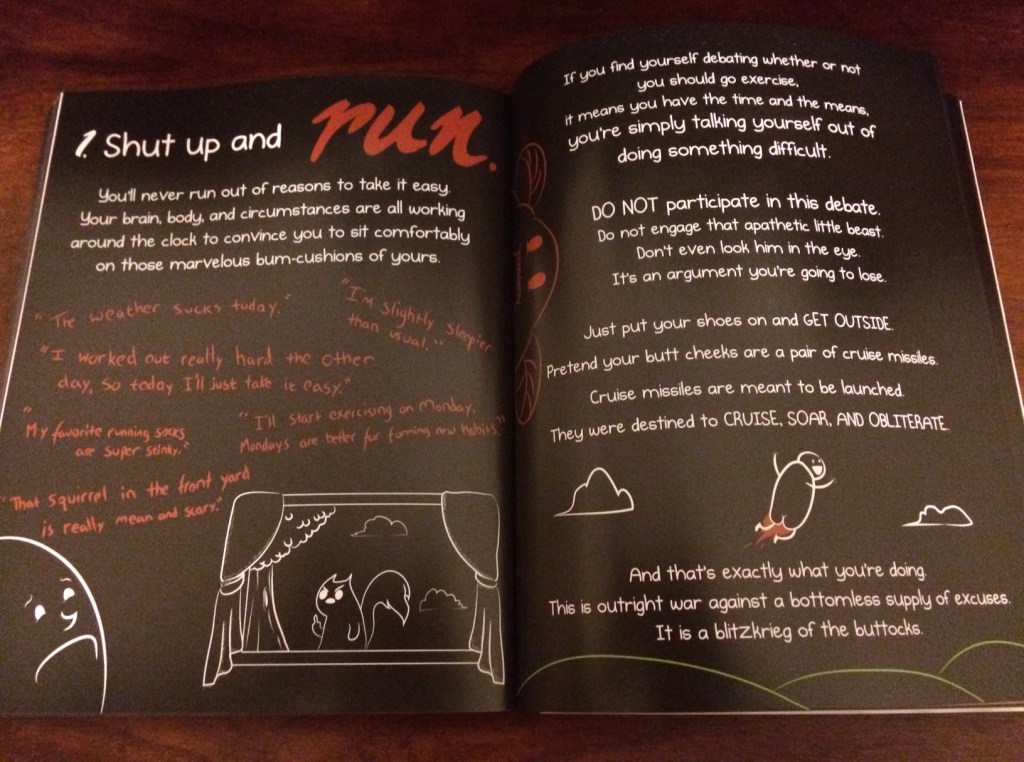 1. Shut up and run.
You'll never run out of reasons to take it easy.
Your brain, body, and circumstances are all working
around the clock to convince you to sit comfortably
on those marvelous bum-cushions of yours.
"The weather sucks today."
"I'm slightly sleepier
than usual."
"I worked out really hard the other
day, so today I'll just take it easy."
"My favorite running socks
are super stinky."
"I'll start exercising on Monday.
Mondays are better for forming new habits."
"That squirrel in the front yard
is really mean and scary."
If you find yourself debating whether or not
you should go exercise,
it means you have the time and the means,
you're simply talking yourself out of
doing something difficult.
DO NOT participate in this debate.
Do not engage that apathetic little beast.
Don't even look him in the eye.
It's an argument you're going to lose.
Just put your shoes on and GET OUTSIDE.
Pretend your butt cheeks are a pair of cruise missiles.
Cruise missiles are meant to be launched.
They were destined to CRUISE, SOAR, AND OBLITERATE.
And that's exactly what you're doing.
This is outright war against a bottomless supply of excuses.
It is a blitzkrieg of the buttocks.